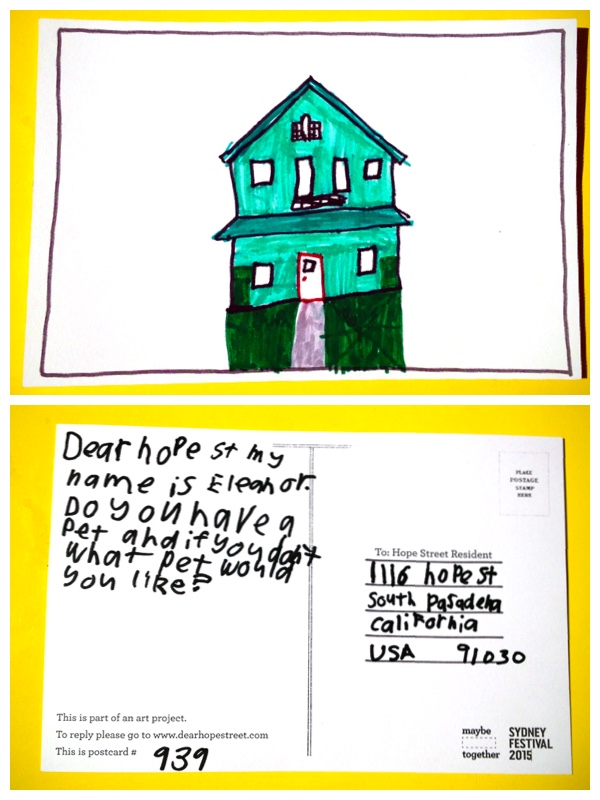 Dear hope st my
name is Eleanor.
Do you have a
Pet and if you don't
what pet would
you like?
PLACE
POSTAGE
STAMP
HERE
To: Hope Street Resident
1116 hope st
South Pasadena
California
USA 91030
This is part of an art project.
To reply please go to www.dearhopestreet.com
This is postcard # 939
maybe
together
SYDNEY
FESTIVAL
2015